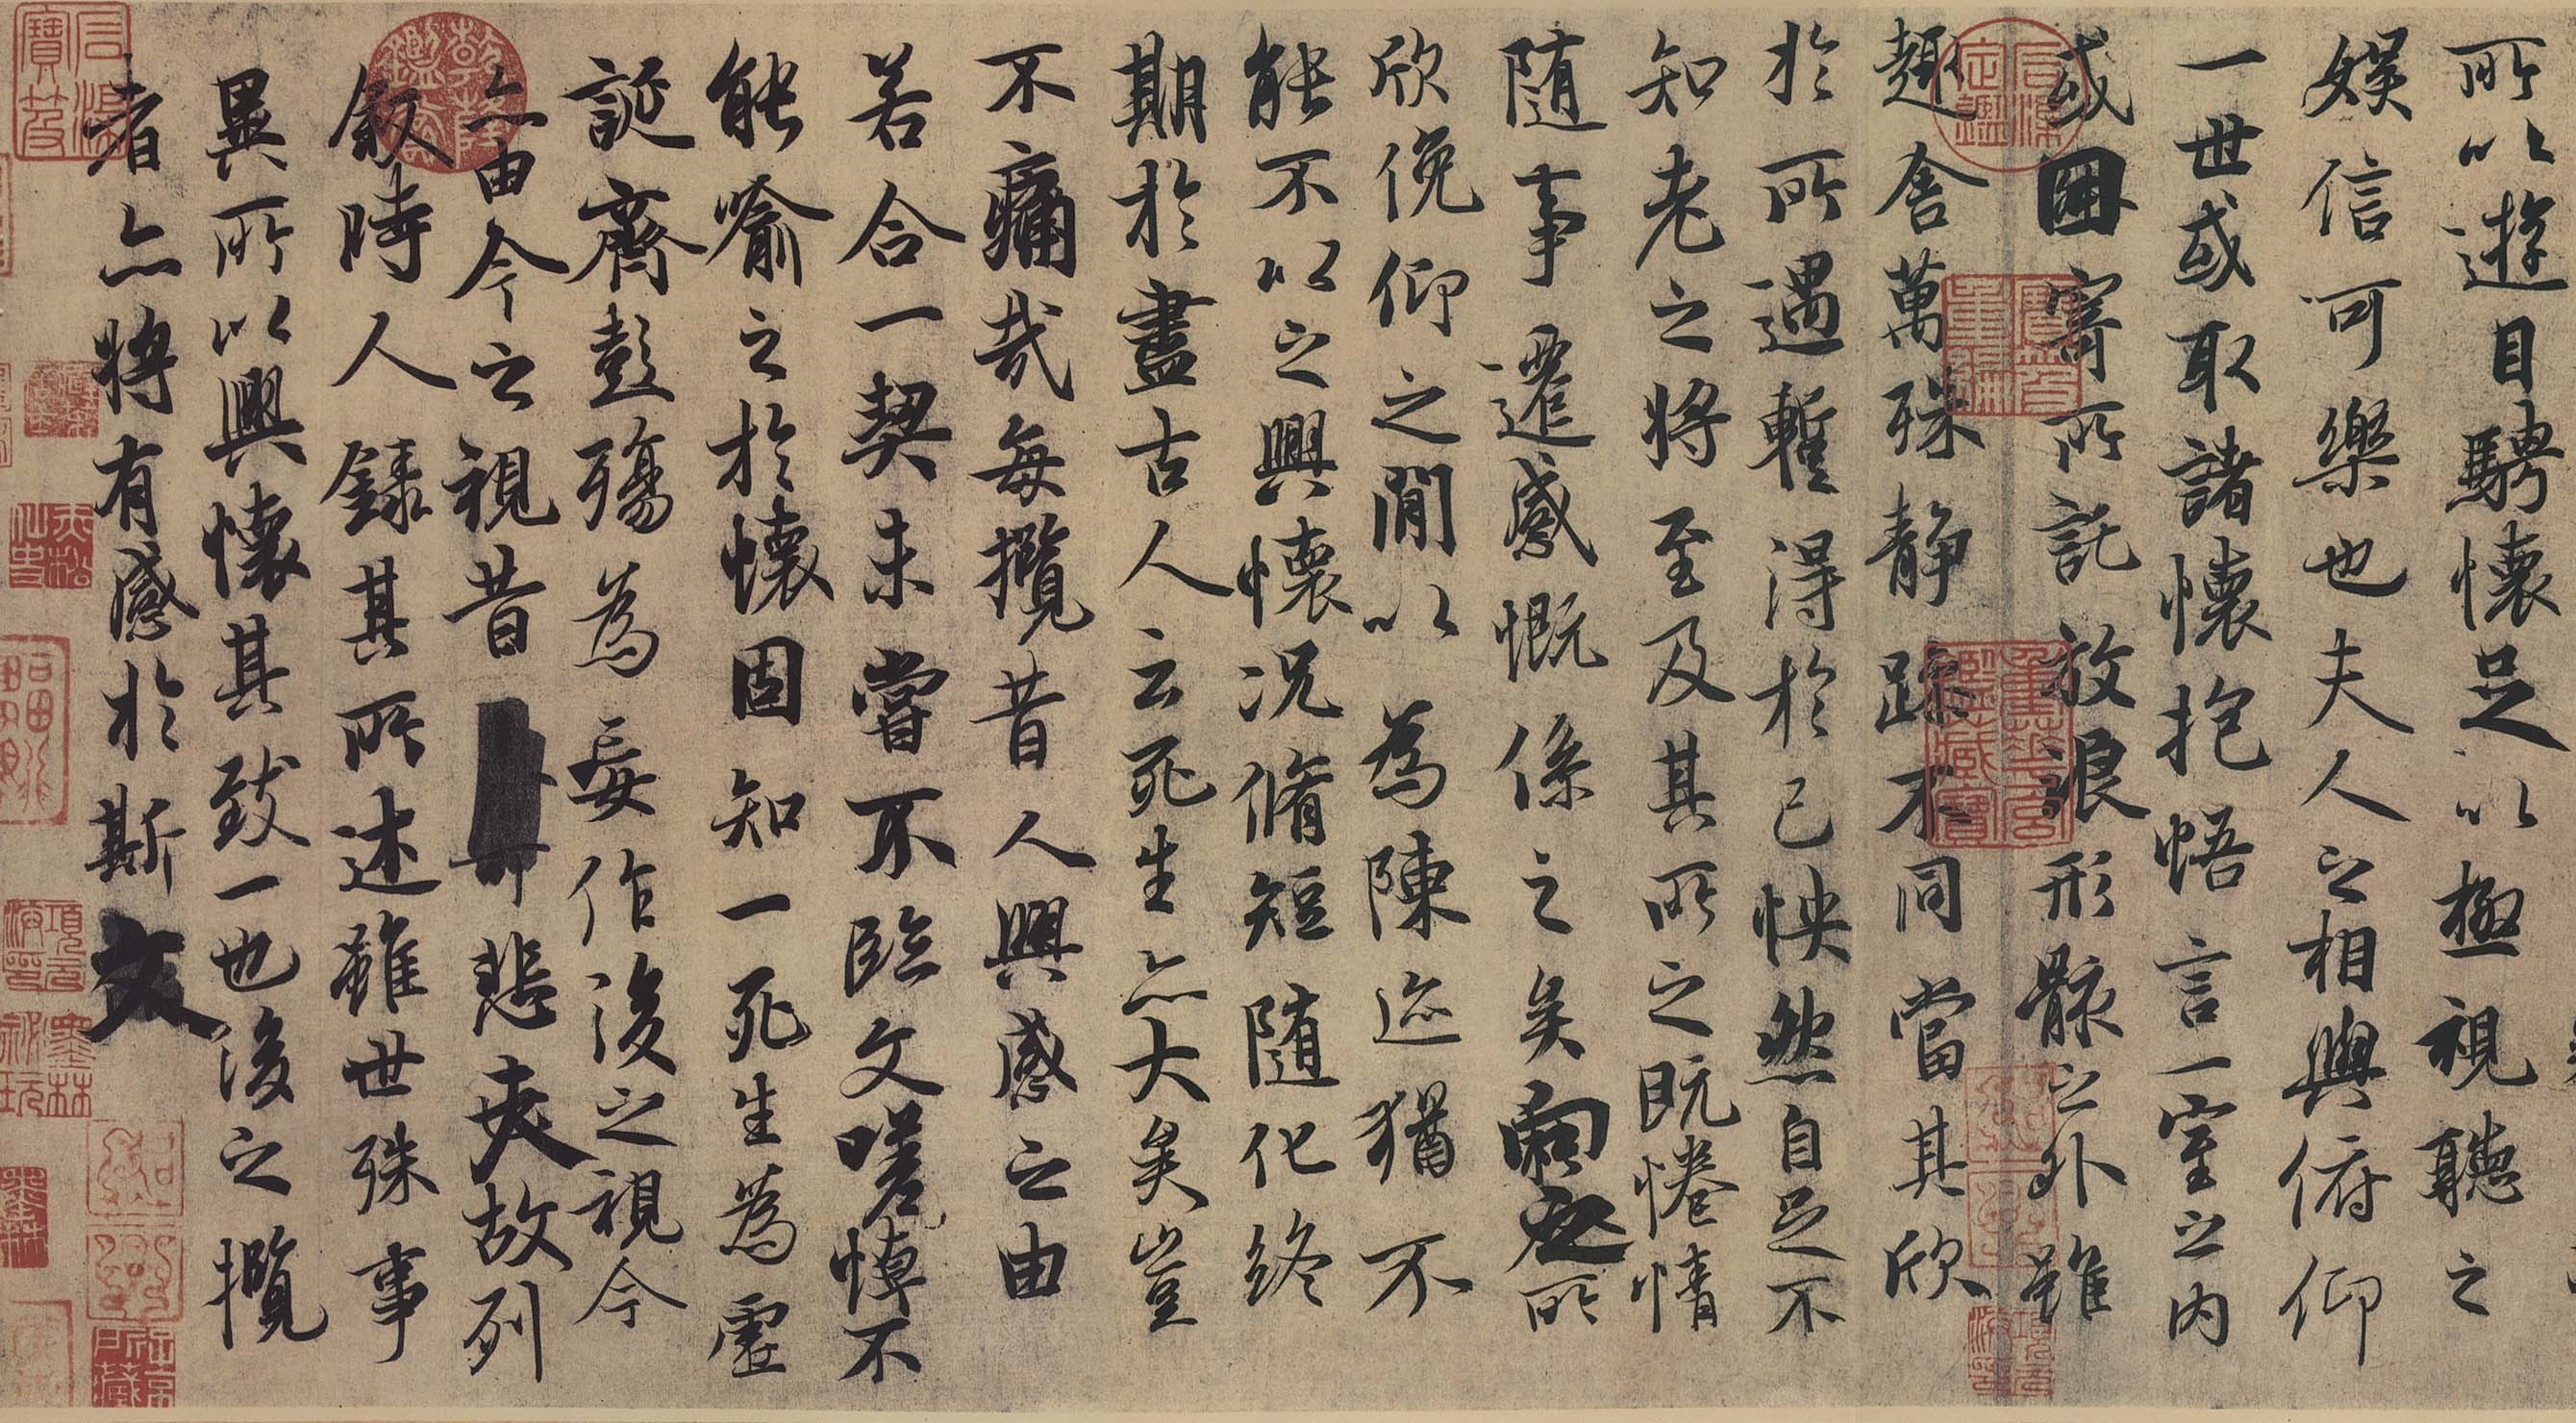 所以遊目騁懷足以極視聽之
娛信可樂也夫人之相與俯仰
一世或取諸懷抱悟言一室之內
或因寄所託放浪形骸之外雖
趣舍萬殊静躁不同當其欣
於所遇暫得於己怏然自足不
知老之將至及其所之既惓情
随事遷感慨係之矣向之所
欣俛仰之閒以為陳迹猶不
能不以之興懷況脩短随化終
期於盡古人云死生亦大矣豈
不痛哉每攬昔人興感之由
若合一契未嘗不臨文嗟悼不
能喻之於懷固知一死生為虛
誕齊彭殤為妄作後之視今
亦由今之視昔悲夫故列
叙時人錄其所述雖世殊事
異所以興懷其致一也後之攬
者亦將有感於斯文